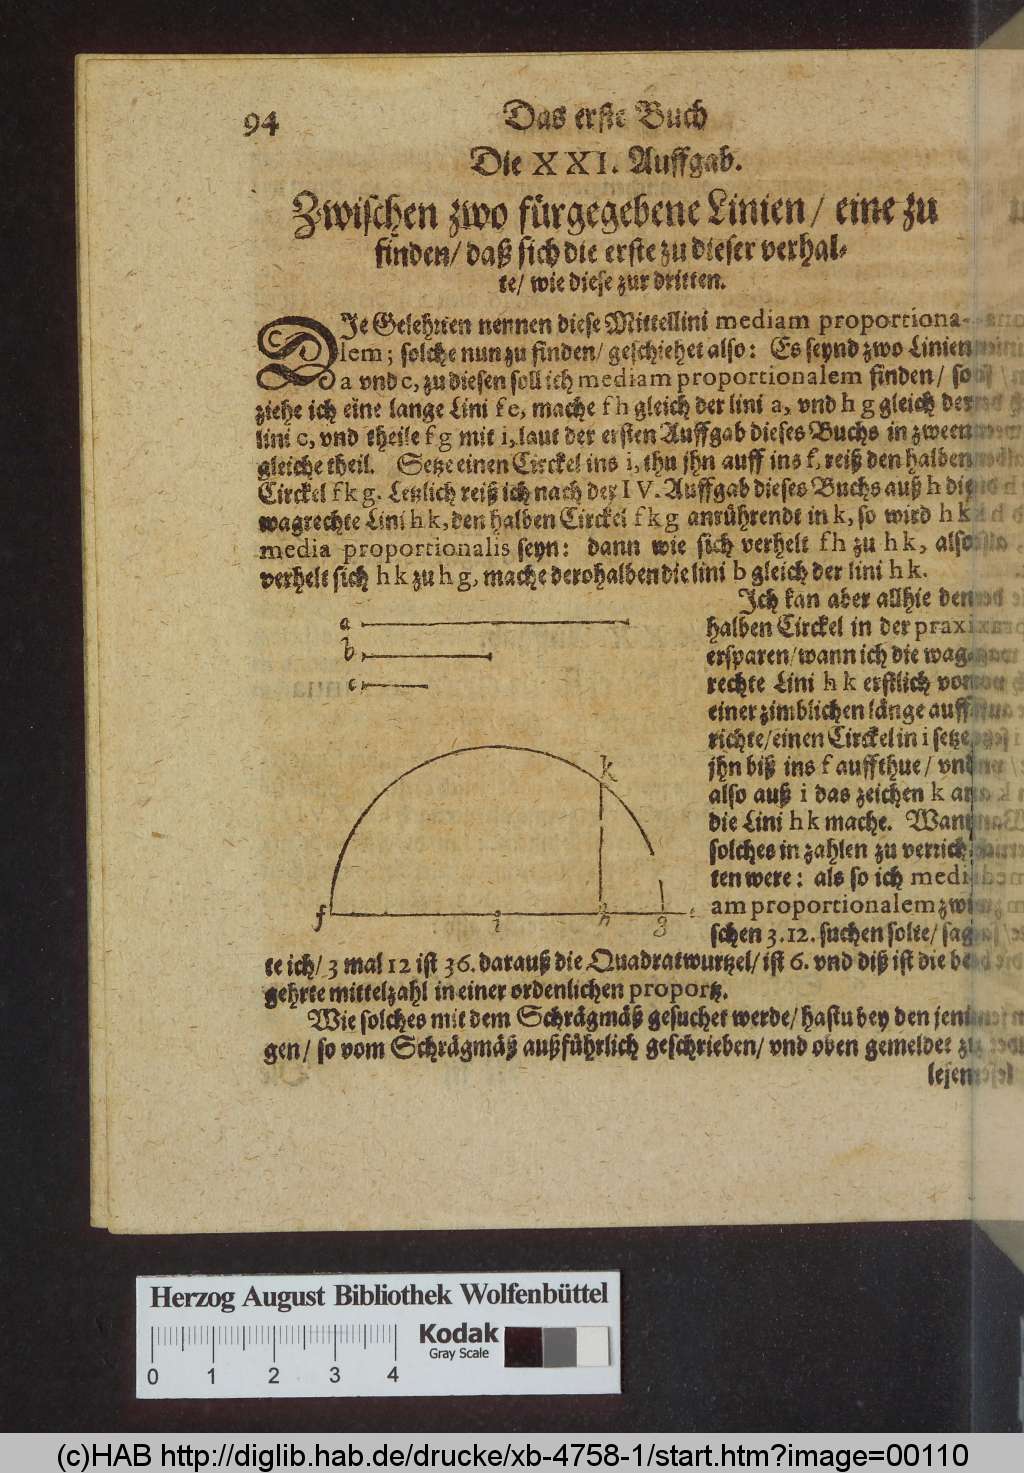 94
Das erste Buch
Die XXI. Auffgab.
Zwischen zwo fürgegebene Linien/ eine zu
finden/ daß sich die erste zu dieser verhal-
te/ wie diese zur dritten.
DJe Gelehrten nennen diese Mittellini mediam proportiona-
lem; solche nun zu finden/ geschiehet also: Es seynd zwo Linien
a vnd c, zu diesen soll ich mediam proportionalem finden/ so
ziehe ich eine lange Lini f e, mache f h gleich der lini a, vnd h g gleich der
lini c, vnd theile f g mit i, laut der ersten Auffgab dieses Buchs in zween
gleiche theil. Setze einen Circkel ins i, thu jhn auff ins f, reiß den halben
Circkel f k g. Letzlich reiß ich nach der IV. Auffgab dieses Buchs auß h die
wagrechte Lini h k, den halben Circkel f k g anrührendt in k, so wird h k
media proportionalis seyn: dann wie sich verhelt f h zu h k, also
verhelt sich h k zu h g, mache derohalben die lini b gleich der lini h k.
a
b
c
k
f
i
h
g
Jch kan aber allhie den
halben Circkel in der praxi
ersparen/ wann ich die wag-
rechte Lini h k erstlich von
einer zimblichen länge auff
richte/ einen Circkel in i setze,
jhn biß ins f auffthue/ vnd
also auß i das zeichen k an
die Lini h k mache. Wann
solches in zahlen zu verrich-
ten were: als so ich medi-
am proportionalem zwi-
schen 3. 12. suchen solte/ sag-
te ich/ 3 mal 12 ist 36. darauß die Quadratwurtzel/ ist 6. vnd diß ist die be-
gehrte mittelzahl in einer ordenlichen proportz.
Wie solches mit dem Schrägmäß gesuchet werde/ hastu bey den jeni-
gen/ so vom Schrägmäß außführlich geschrieben/ vnd oben gemeldet zu
lesen
Herzog August Bibliothek Wolfenbüttel
Kodak
Gray Scale
0 1 2 3 4
(c)HAB http://diglib.hab.de/drucke/xb-4758-1/start.htm?image=00110